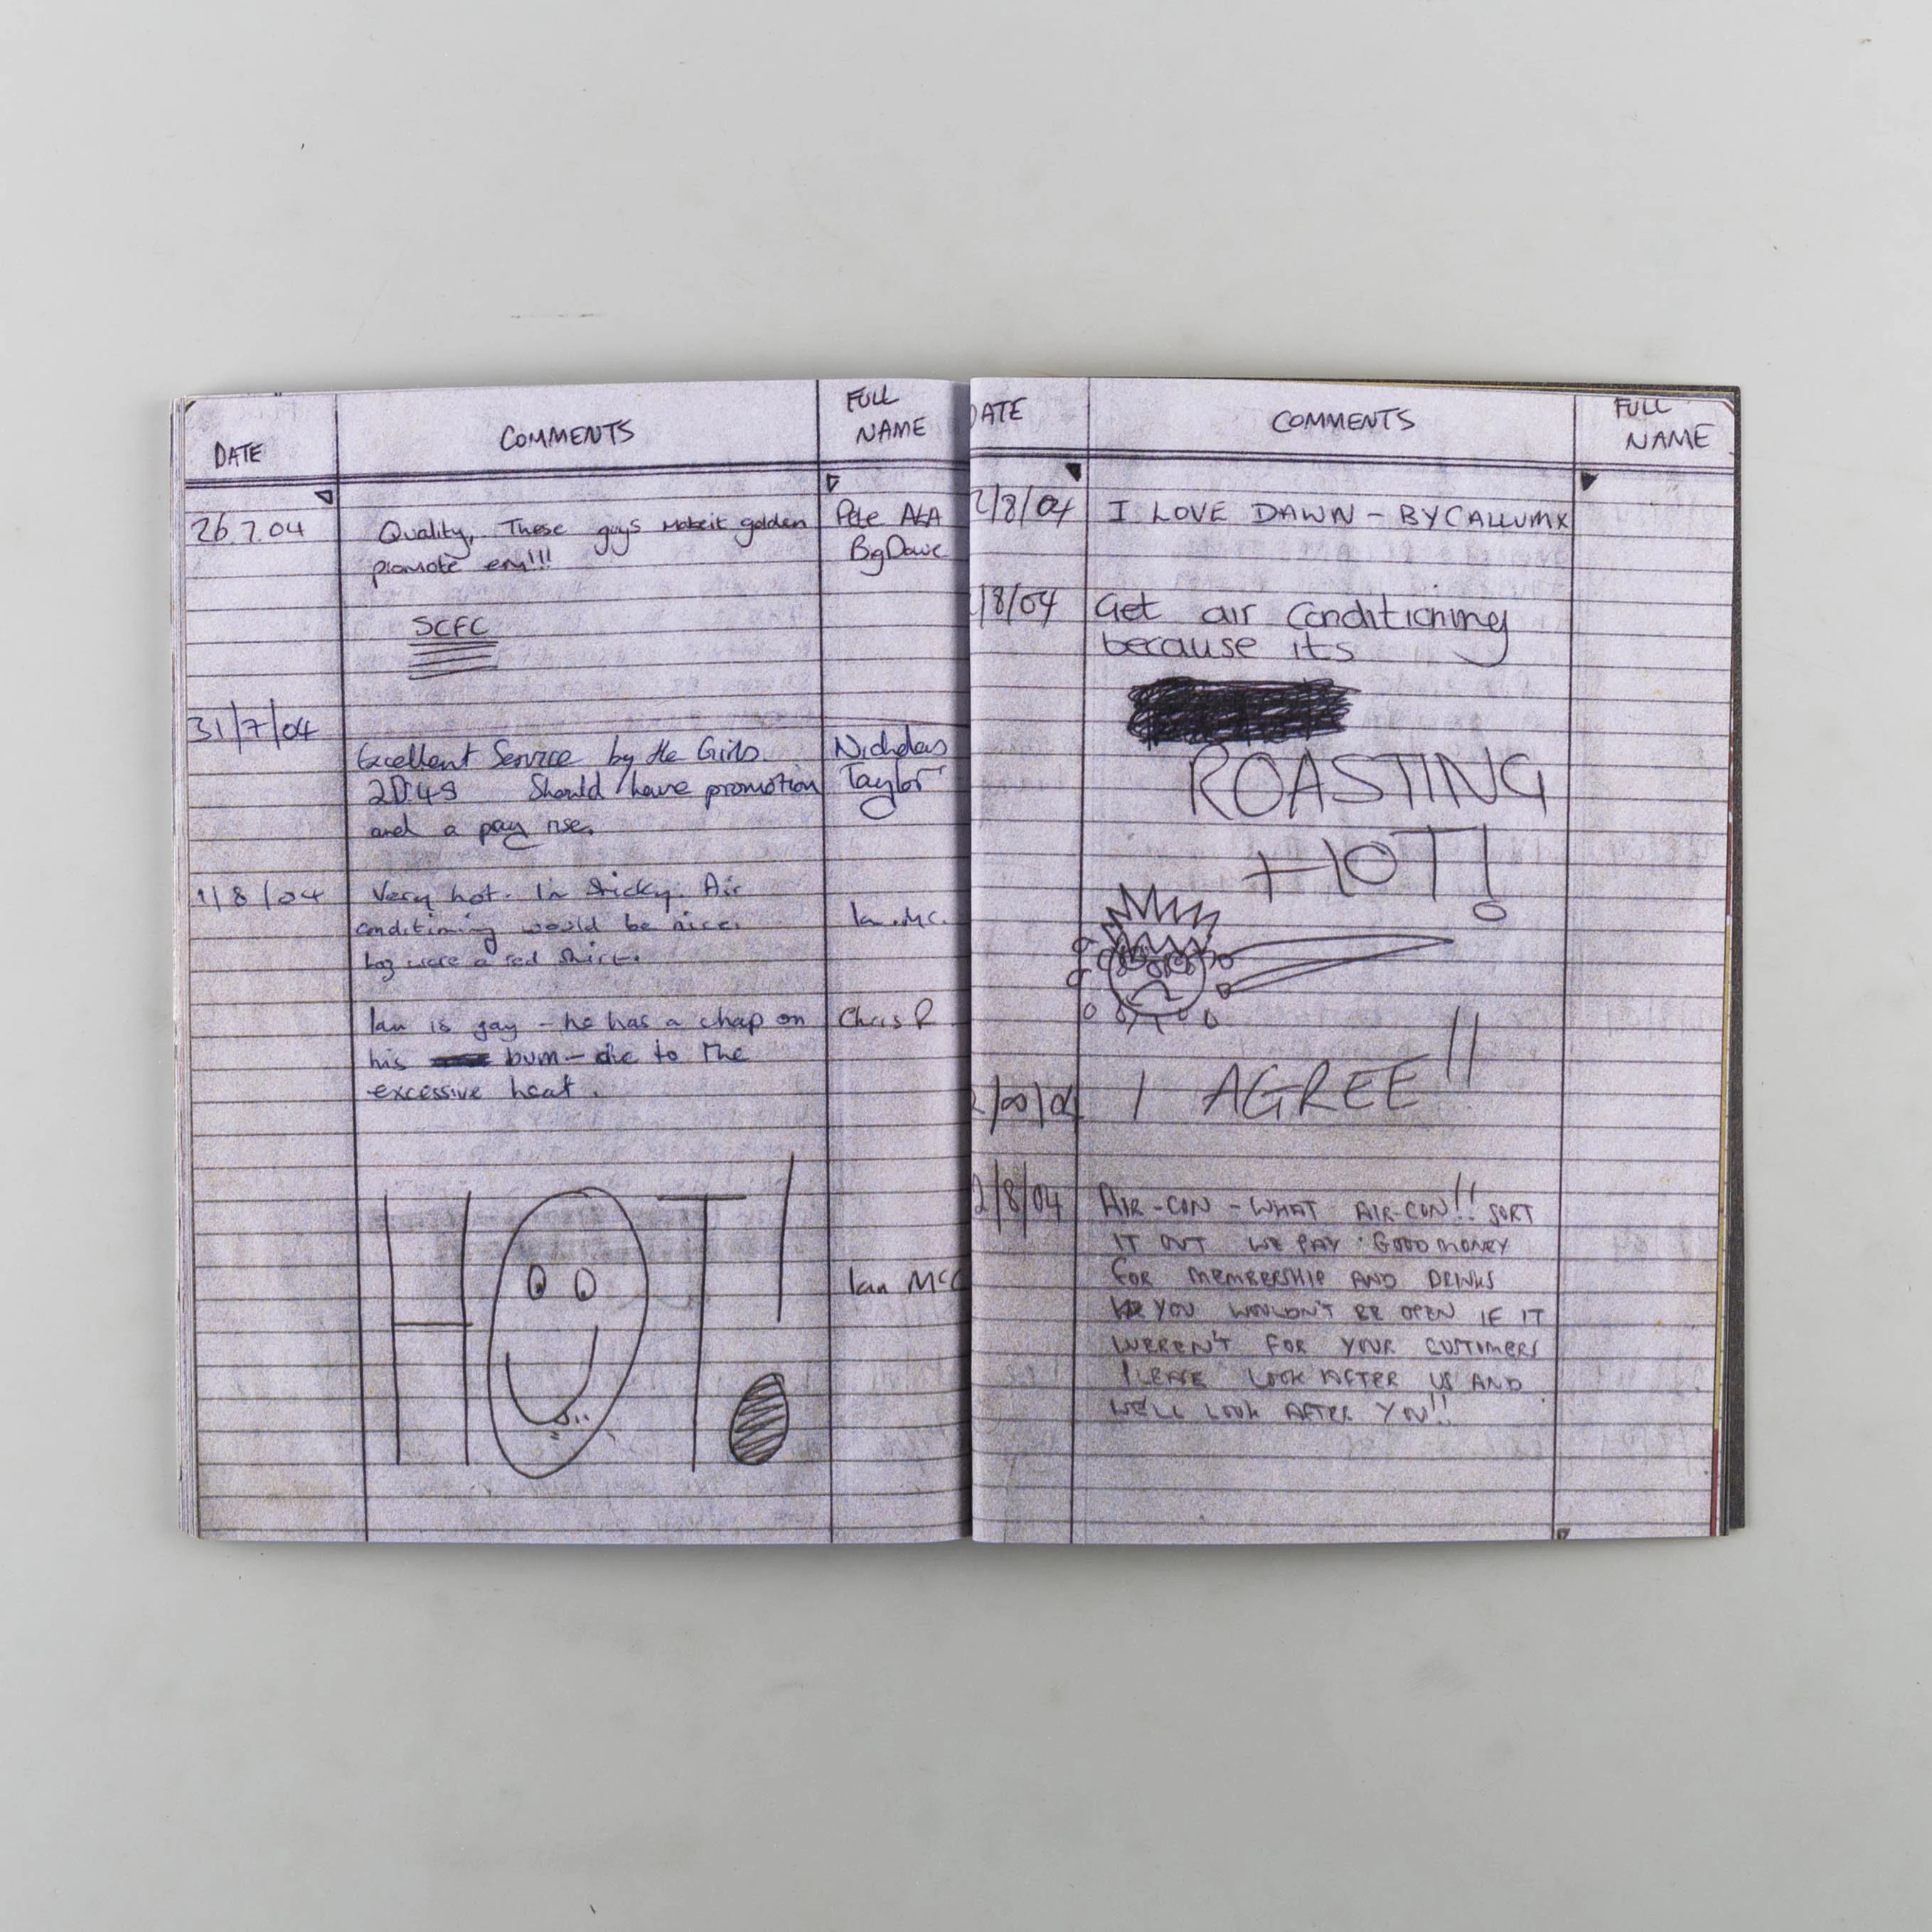 DATE
COMMENTS
FULL
NAME
26.7.04
Quality, These guys golden
promote em!!!
Pete AKA
Big Dave
SCFC
31/7/04
Excellent Service by the Girls.
Should have promotion
and a pay rise.
Nicholas
Taylor
1/8/04
Very hot. In Sticky. Air
conditioning would be nice.
a red Shirt.
Ian.Mc.
Ian is gay - he has a chap on
his bum - due to the
excessive heat.
Chris R
HOT!
Ian McC
DATE
COMMENTS
FULL
NAME
2/8/04
I LOVE DAWN - BY CALLUM X
/8/04
Get air conditioning
because its
ROASTING
HOT!
I AGREE!!
2/8/04
AIR-CON - WHAT AIR-CON!! SORT
IT OUT WE PAY GOOD MONEY
FOR MEMBERSHIP AND DRINKS
YOU WOULDN'T BE OPEN IF IT
WEREN'T FOR YOUR CUSTOMERS
PLEASE LOOK AFTER US AND
WE'LL LOOK AFTER YOU!!